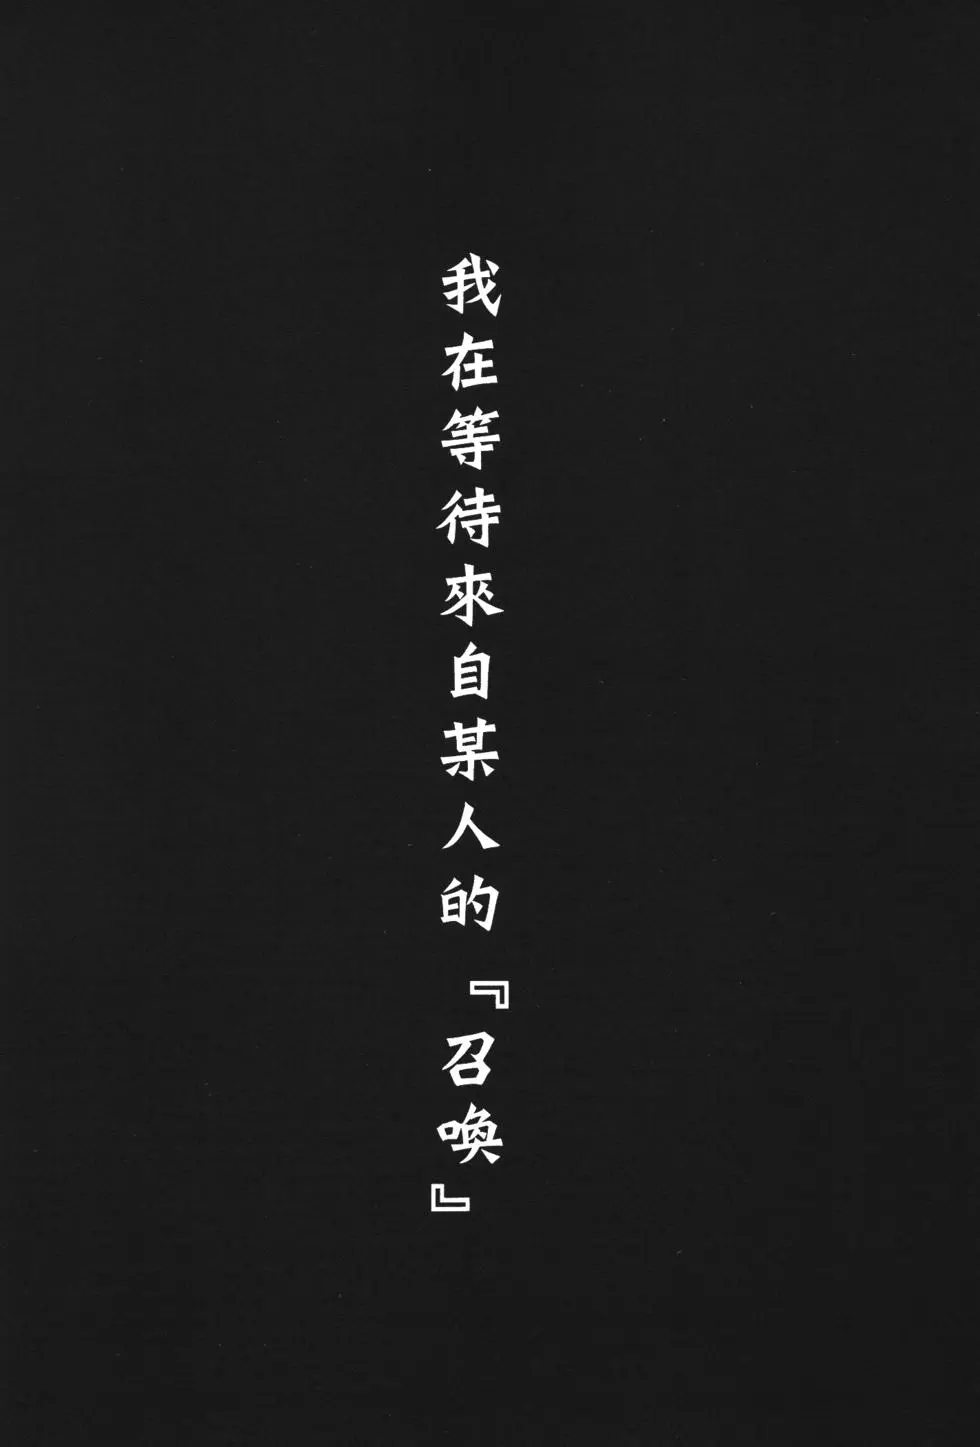 我在等待來自某人的『召喚』